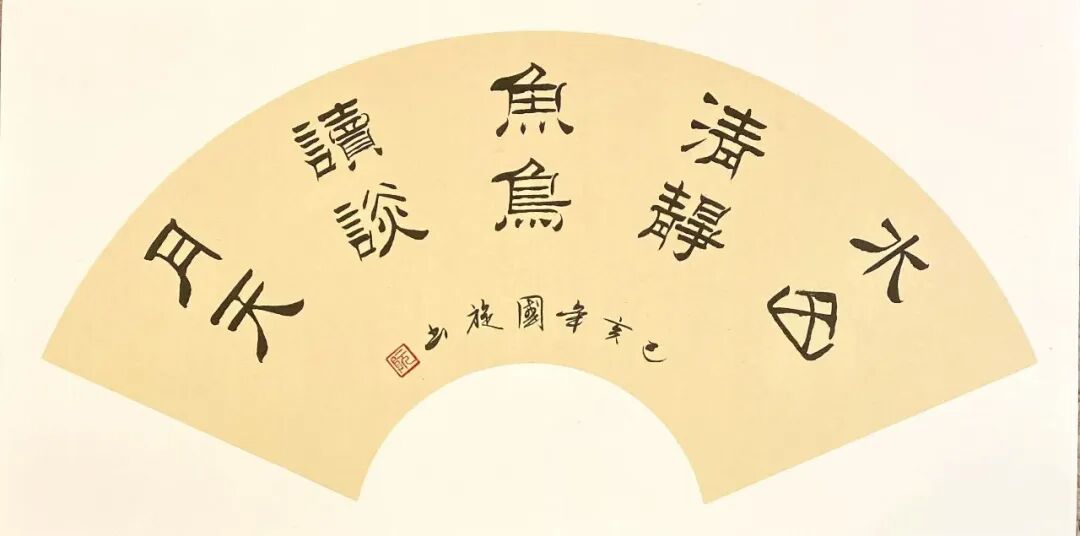 水清魚讀月
田靜鳥談天
己亥年國旋书